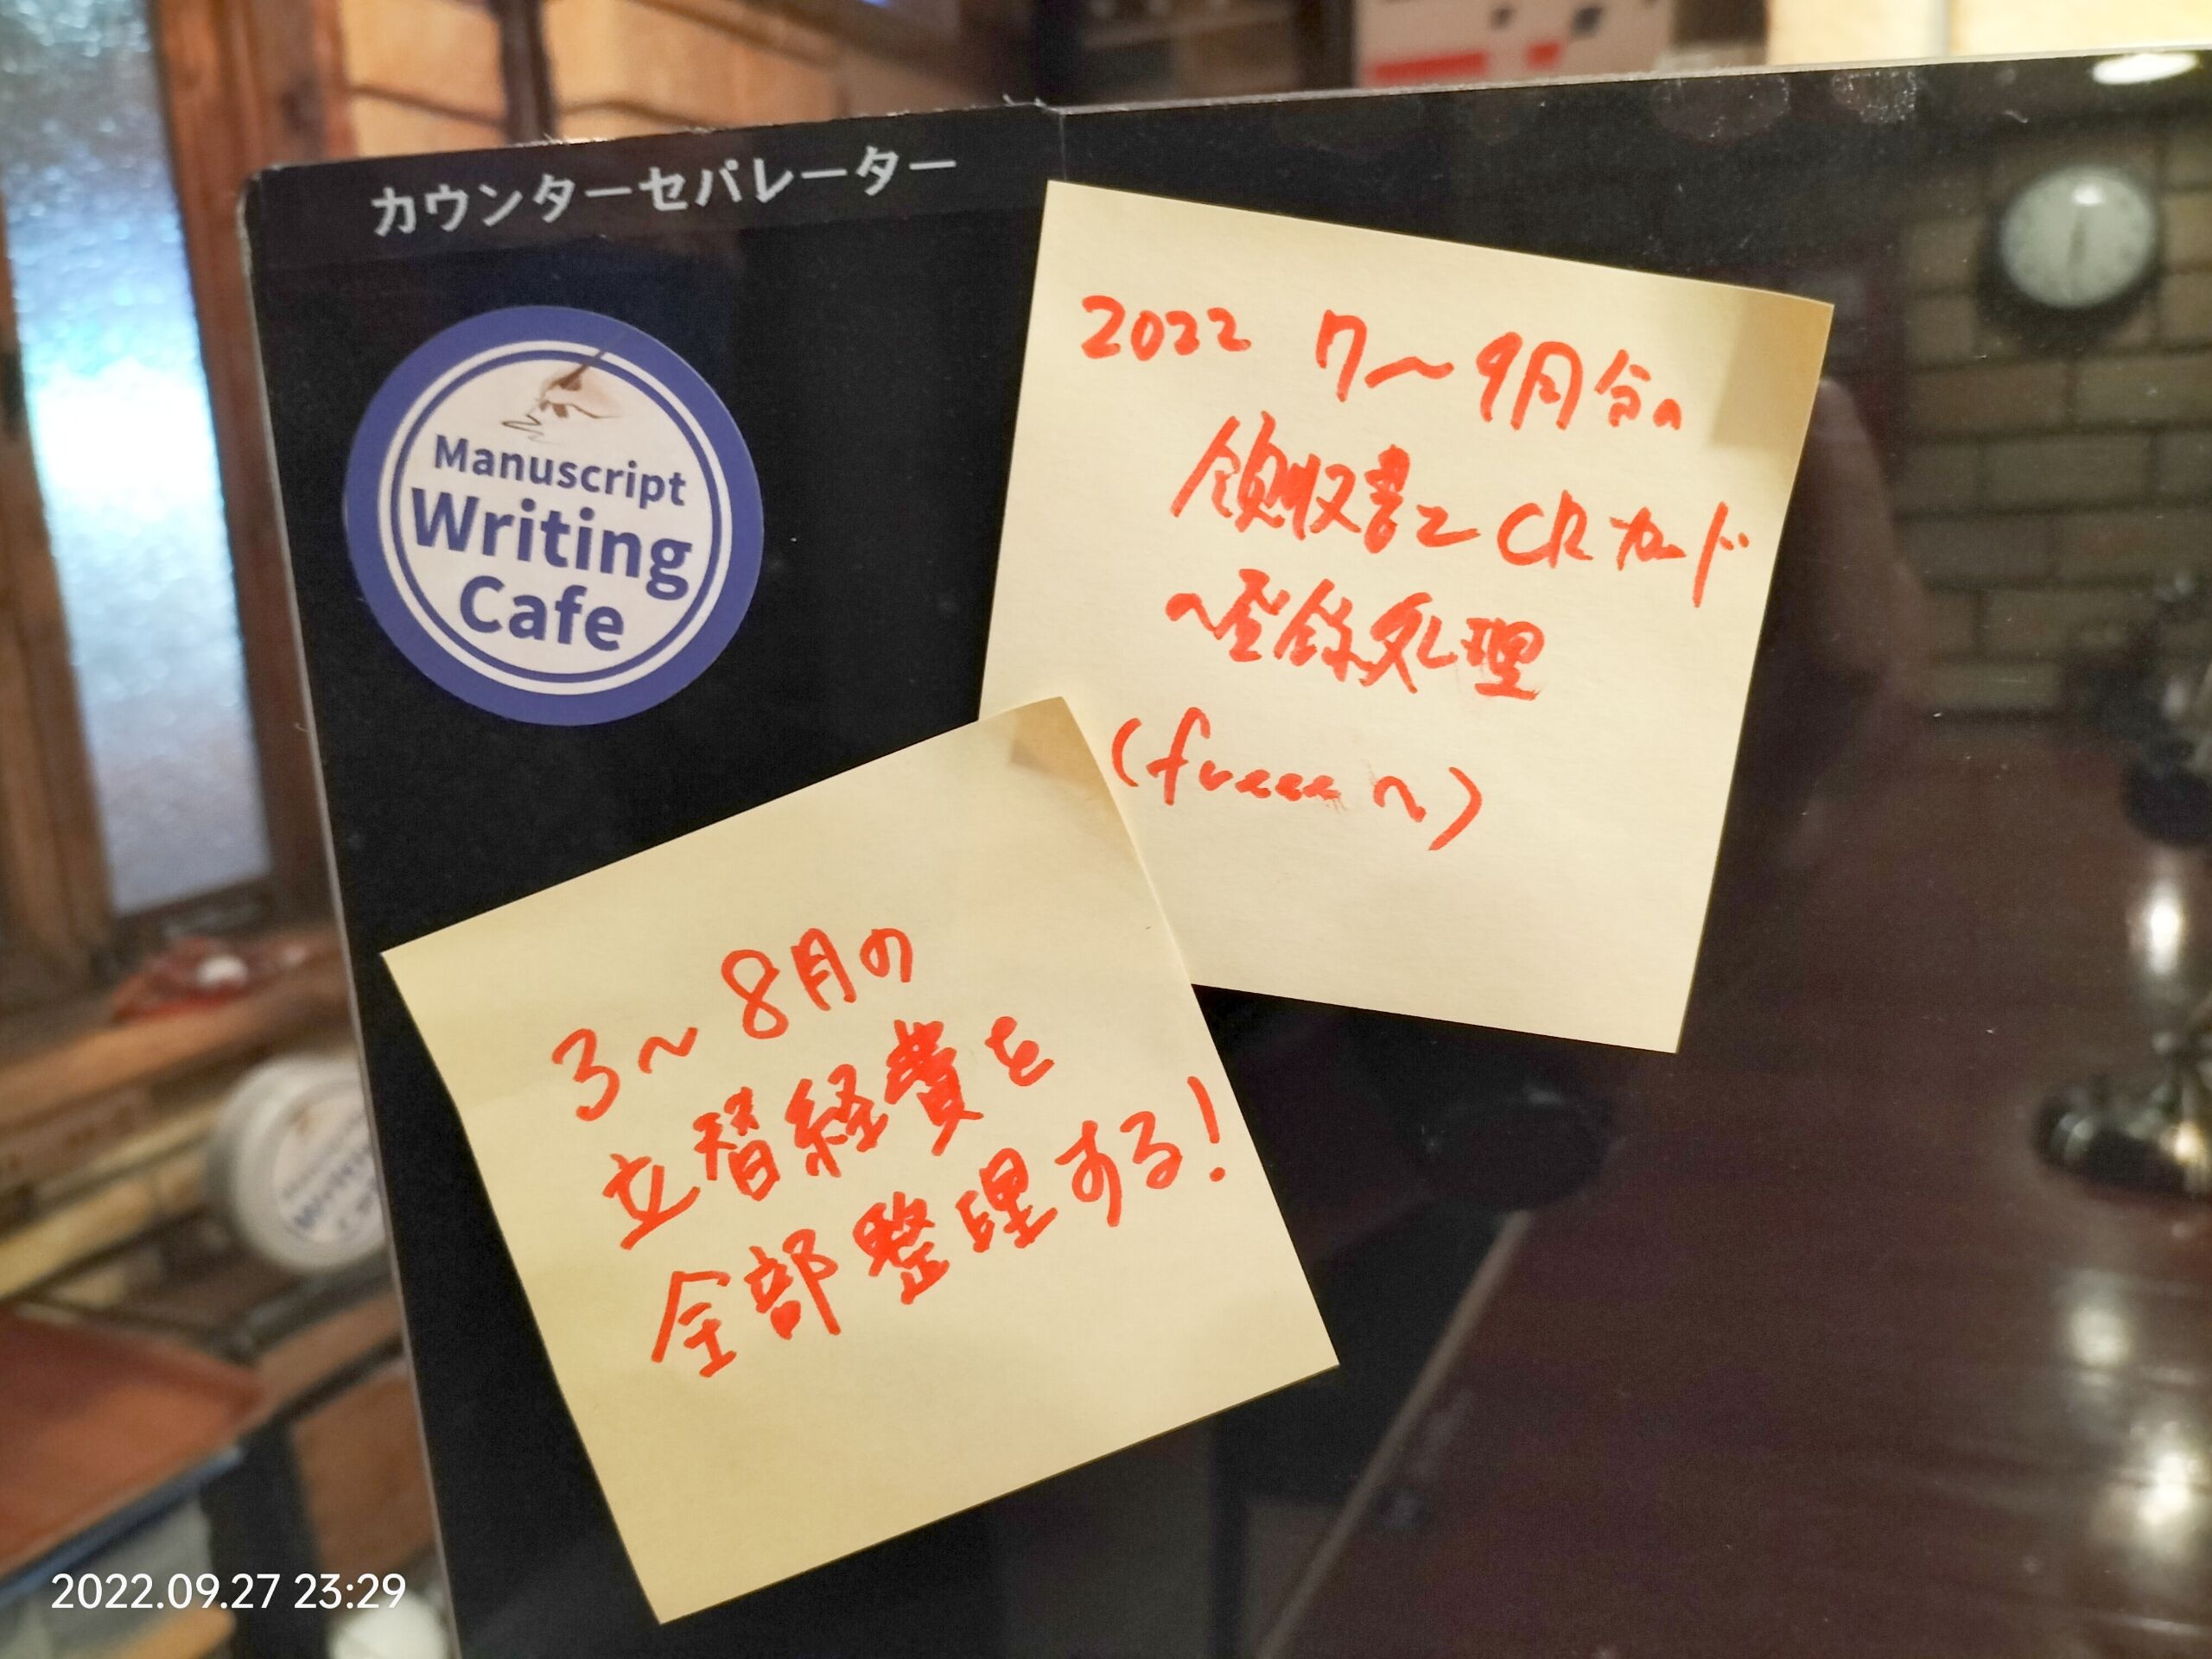 カウンターセパレーター
Manuscript
Writing
Cafe
2022 7〜9月分の
領収書とCRカード
の登録処理
(freeeへ)
3〜8月の
立替経費を
全部整理する!
2022.09.27 23:29